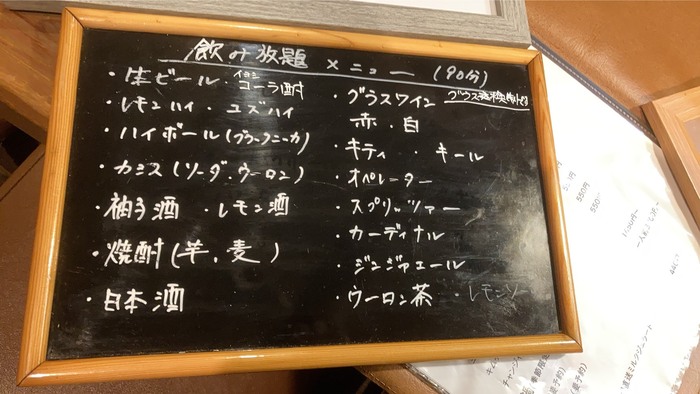 飲み放題 メニュー (90分)
・生ビール ・コーラ酎
・レモンハイ ・ユズハイ
・ハイボール(ブラックニッカ)
・カシス(ソーダ・ウーロン)
・柚子酒 ・レモン酒
・焼酎(芋、麦)
・日本酒
・グラスワイン
赤・白
・キティ ・キール
・オペレーター
・スプリッツァー
・カーディナル
・ジンジャエール
・ウーロン茶 ・レモンソー
550円
550